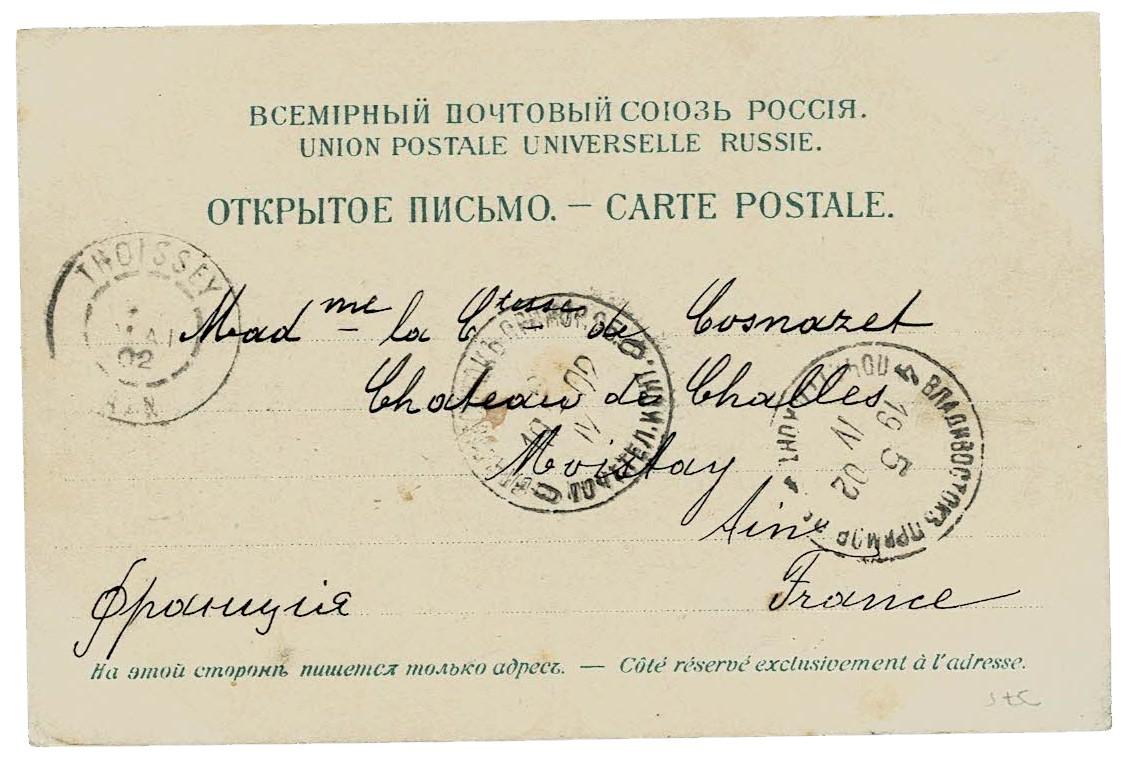 ВСЕМІРНЫЙ ПОЧТОВЫЙ СОЮЗЪ РОССІЯ.
UNION POSTALE UNIVERSELLE RUSSIE.
ОТКРЫТОЕ ПИСЬМО. — CARTE POSTALE.
THOISSEY
02
Mad me la Ctesse de Cosnazet
Chateau de Challes
ВЛАДИВОСТОКЪ ПРИМОР
19 5
IV 02
ПОЧ ТЕЛ
IV 02
Ain
Франція
France
На этой сторонѣ пишется только адресъ. — Côté réservé exclusivement à l'adresse.